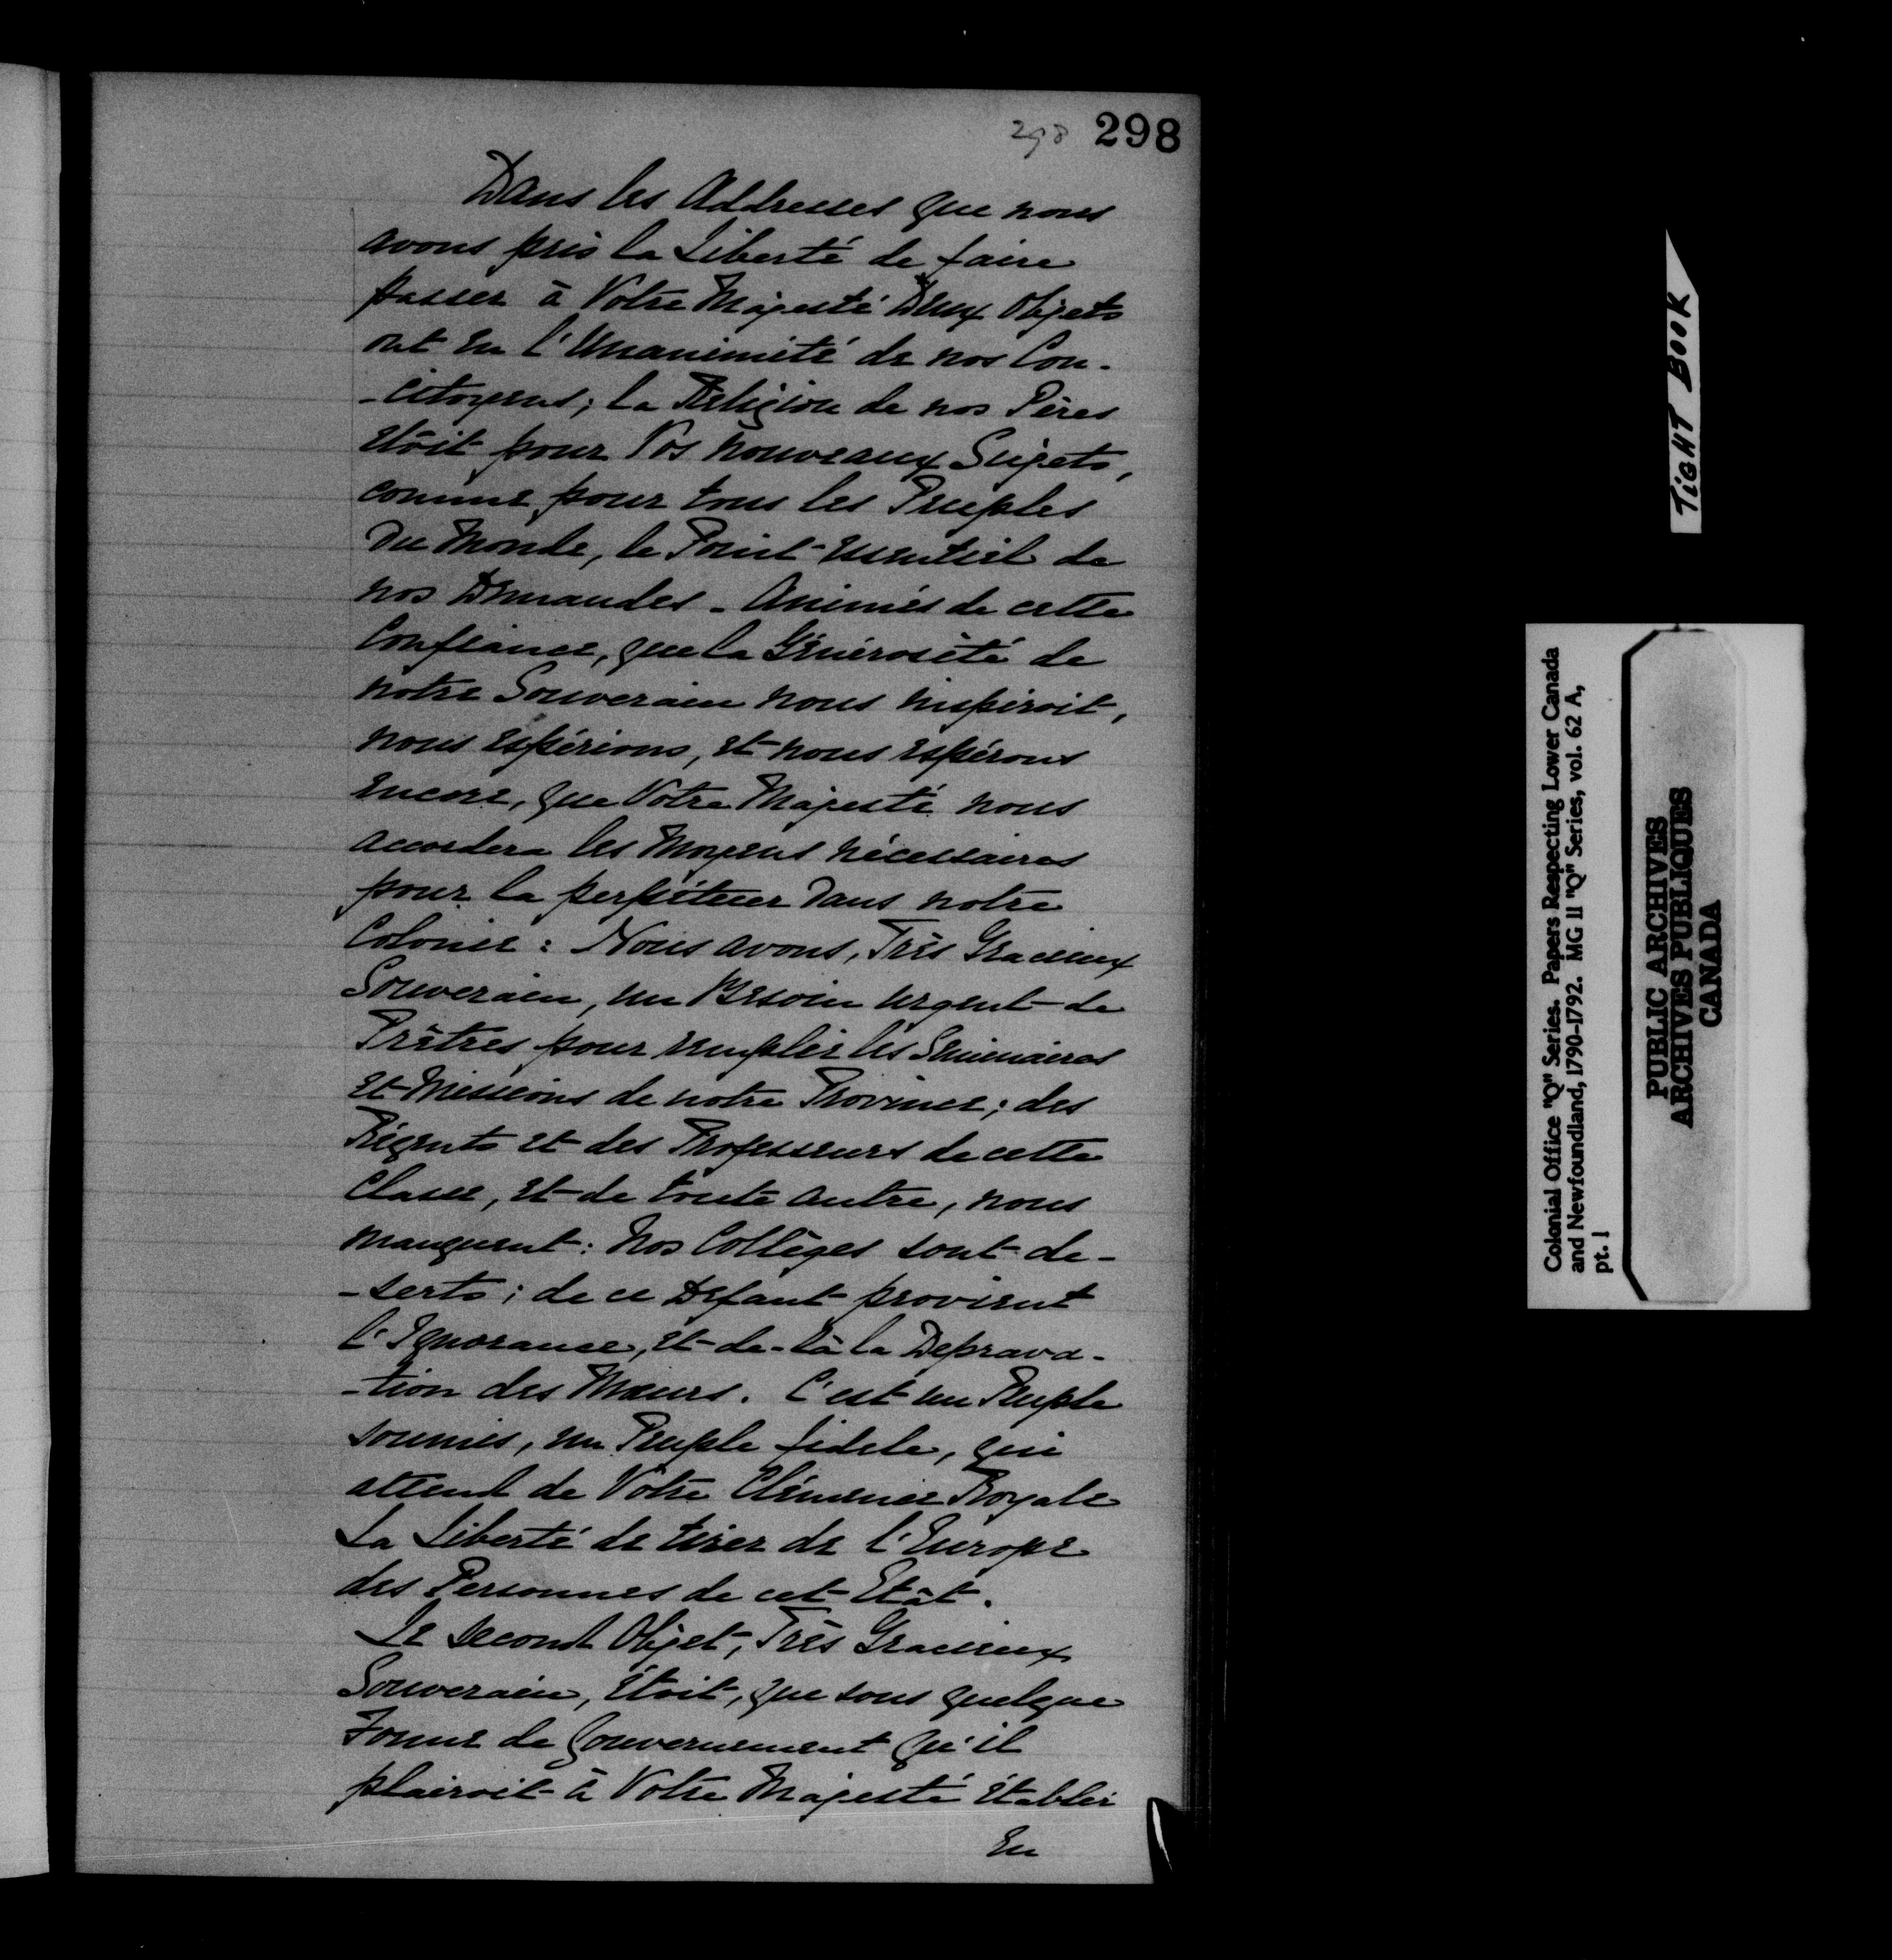 298 298
Dans les Addresses que nous
avons pris la Liberté de faire
passer à Votre Majesté Deux Objets
ont eu l'Unanimité de nos Con-
-citoyens; la Réligion de nos Pères
etoit pour Vos nouveaux Sujets,
comme pour tous les Peuples
Du Monde, le Point essentiel de
nos Demandes - Animés de cette
Confiance, que la Générosité de
notre Souverain nous inspiroit,
nous espérions, et nous espérons
encore, que Votre Majesté nous
accordera les Moyens nécessaires
pour la perpétuer dans notre
Colonie: Nous avons, Très Gracieux
Souverain, un Besoin urgent de
Prêtres pour remplir les Seminaires
et Missions de notre Province; des
Régents et des Professeurs de cette
Classe, et de toute autre, nous
manquent: Nos Collèges sont de-
-serts; de ce Defaut provient
l'Ignorance, et de-là la Deprava-
-tion des Mœurs. C'est un Peuple
soumis, un Peuple fidele, qui
attend de Votre Clémence Royale
La Liberté de tirer de l'Europe
des Personnes de cet Etât.
Le Second Objet, Très Gracieux
Souverain, étoit, que sous quelque
Forme de Gouvernement qu'il
plairoit à Votre Majesté établir
En
TIGHT BOOK
Colonial Office "Q" Series. Papers Respecting Lower Canada
and Newfoundland, 1790-1792. MG 11 "Q" Series, vol. 62 A,
pt. 1
PUBLIC ARCHIVES
ARCHIVES PUBLIQUES
CANADA